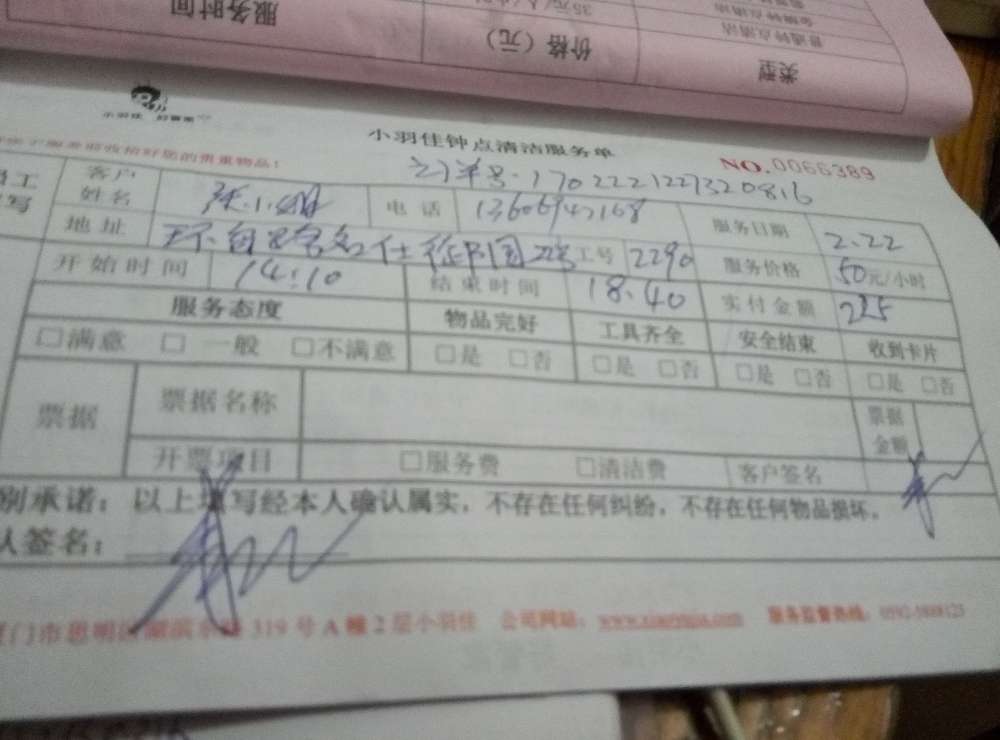 服务时间
价格（元）
35元/人/小时
类型
普通钟点清洁
金牌钟点清洁
小羽佳
小羽佳钟点清洁服务单
NO.0066389
贵重物品！
订单号.1702221227320816
客户姓名
电话
服务日期 2.22
地址
工号 2290
服务价格 50元/小时
开始时间 14:10
结束时间 18.40
实付金额 225
服务态度 物品完好 工具齐全 安全结束 收到卡片
□满意 □一般 □不满意 □是 □否 □是 □否 □是 □否 □是 □否
票据 票据名称 票据金额
开票项目 □服务费 □清洁费 客户签名
别承诺：以上填写经本人确认属实，不存在任何纠纷，不存在任何物品损坏。
认签名：
门市思明区湖滨东路319号A幢2层小羽佳 公司网站： 服务监督热线：